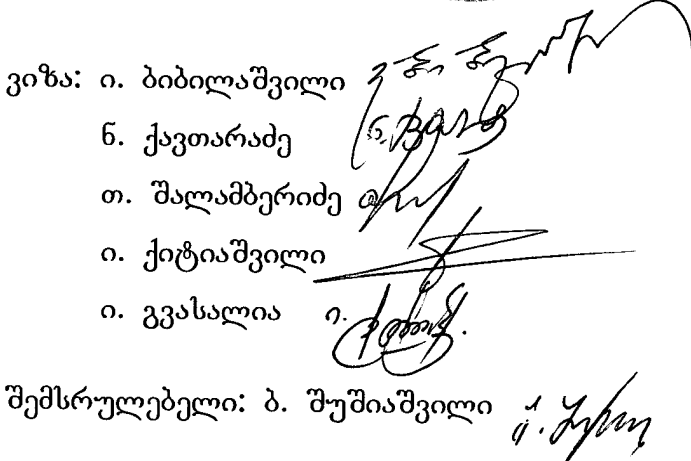 ვიზა: ი. ბიბილაშვილი
ნ. ქავთარაძე
თ. შალამბერიძე
ი. ქიტიაშვილი
ი. გვასალია ი.
შემსრულებელი: ბ. შუშიაშვილი